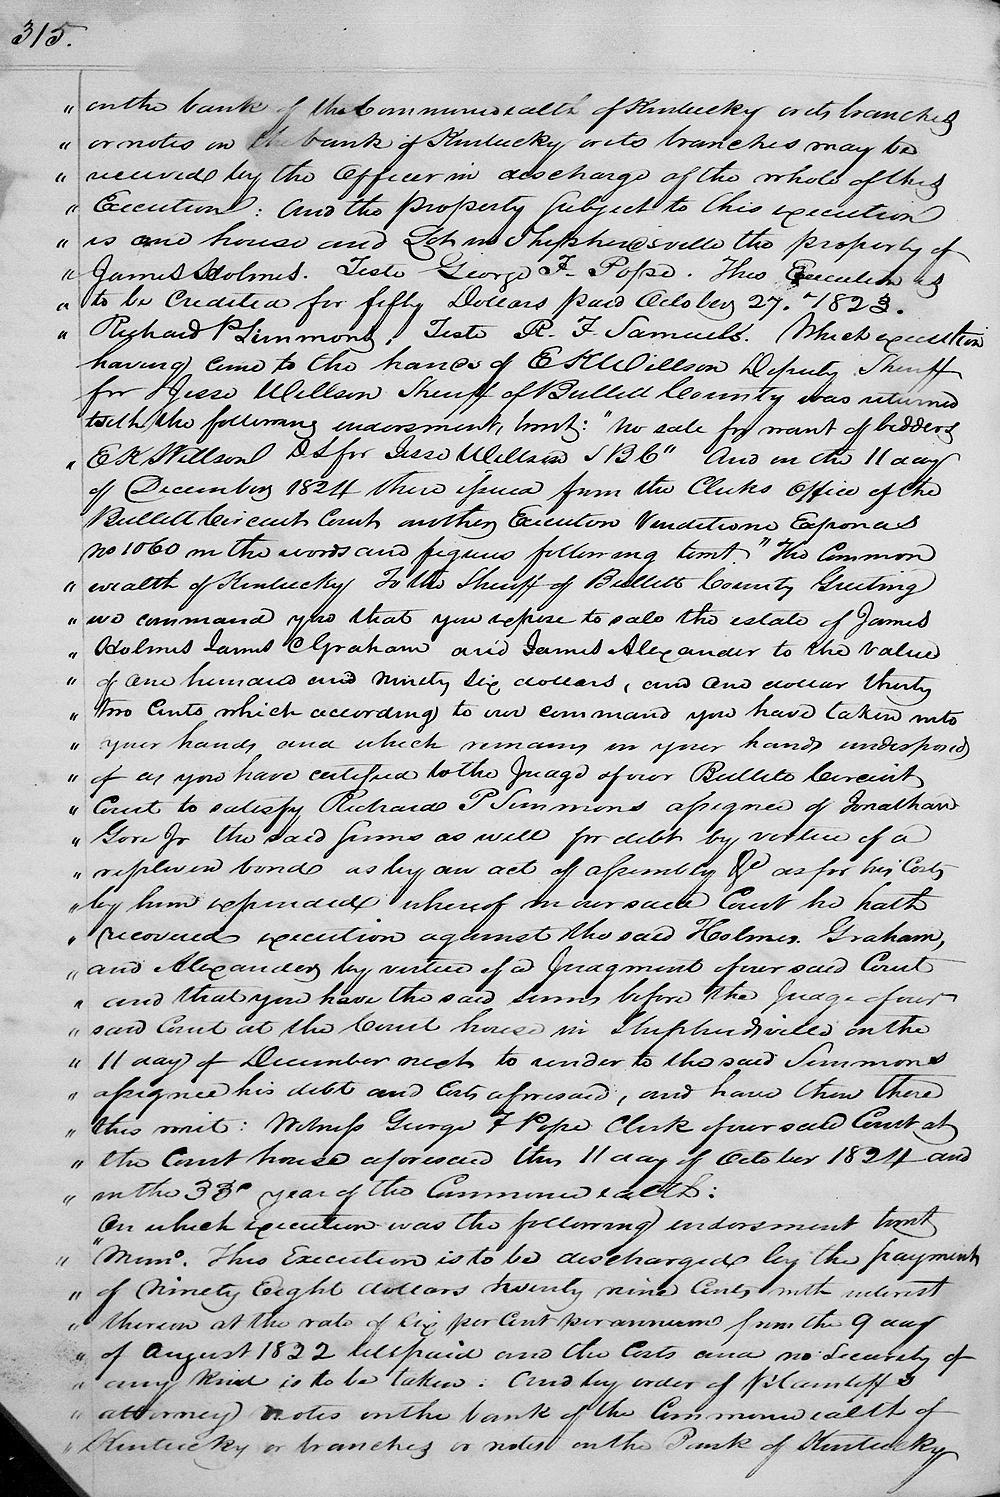 315.
" on the bank of the Commonwealth of Kentucky or its branches
" or notes on the bank of Kentucky or its branches may be
" received by the Officer in discharge of the whole of this
" Execution: And the property Subject to this execution
" is one house and Lot in Shepherdsville the property of
" James Holmes. Teste George F. Pope. This Execution is
" to be Credited for fifty Dollars paid October 27. 1823.
" Richard P Simmons, Teste R. F Samuels. Which execution
having come to the hands of E K Willson Deputy Sheriff
for Jesse Willson Sheriff of Bullitt County was returned
with the following endorsment, towit: "No sale for want of bidders
" E K Willson D S for Jesse Willson S B C" And on the 11 day
of December 1824 there issued from the Clerks office of the
Bullitt Circuit Court another Execution Venditione Exponas
no 1060 in the words and figures following towit "The Common
" wealth of Kentucky To the Sheriff of Bullitt County Greeting
" we command you that you expose to sale the estate of James
" Holmes James C Graham and James Alexander to the value
" of one hundred and ninety six dollars, and one dollar thirty
" two Cents which according to our command you have taken into
" your hands and which remains in your hands undisposed
" of as you have certified to the Judge of our Bullitt Circuit
" Court to satisfy Richard P Simmons assignee of Jonathan
" Gore Jr the said sums as well for debt by virtue of a
" replevin bond as by an act of assembly &c as for his Costs
" by him expended whereof in our said Court he hath
" recovered execution against the said Holmes. Graham,
" and Alexander by virtue of a Judgment of our said Court
" and that you have the said sums before the Judge of our
" said Court at the Court house in Shepherdsville on the
" 11 day of December next to render to the said Simmons
" assignee his debt and Costs aforesaid, and have then there
" this writ: Witness George F Pope Clerk of our said Court at
" the Court house aforesaid this 11 day of October 1824 and
" in the 33d year of the Commonwealth:
On which execution was the following endorsment towit
" "Memo. This Execution is to be discharged by the payment
" of Ninety Eight dollars twenty nine Cents with interest
" thereon at the rate of Six per Cent per annum from the 9 day
" of August 1822 till paid and the Costs and no Security of
" any kind is to be taken: And by order of Plaintiffs
" attorney notes on the bank of the Commonwealth of
" Kentucky or branches or notes on the Bank of Kentucky